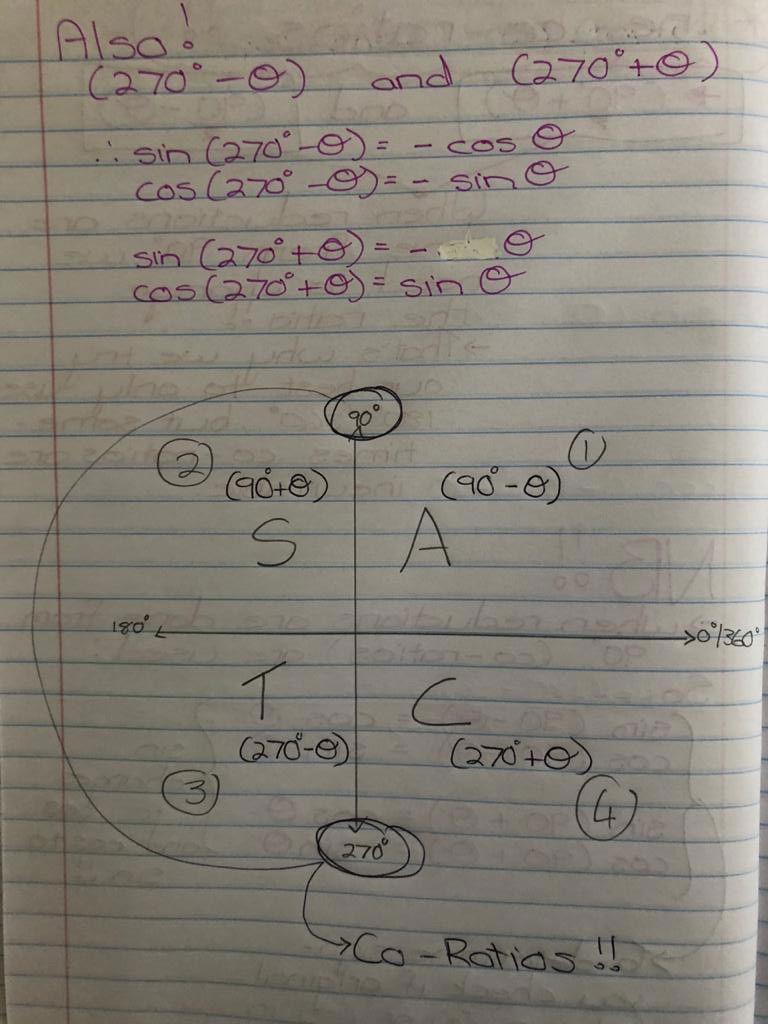 Also!
(270° - θ) and (270° + θ)
∴ sin (270° - θ) = - cos θ
cos (270° - θ) = - sin θ
sin (270° + θ) = - θ
cos (270° + θ) = sin θ
90°
② ①
(90° + θ) (90° - θ)
S A
180° 0°/360°
T C
(270° - θ) (270° + θ)
③ ④
270°
Co-Ratios !!